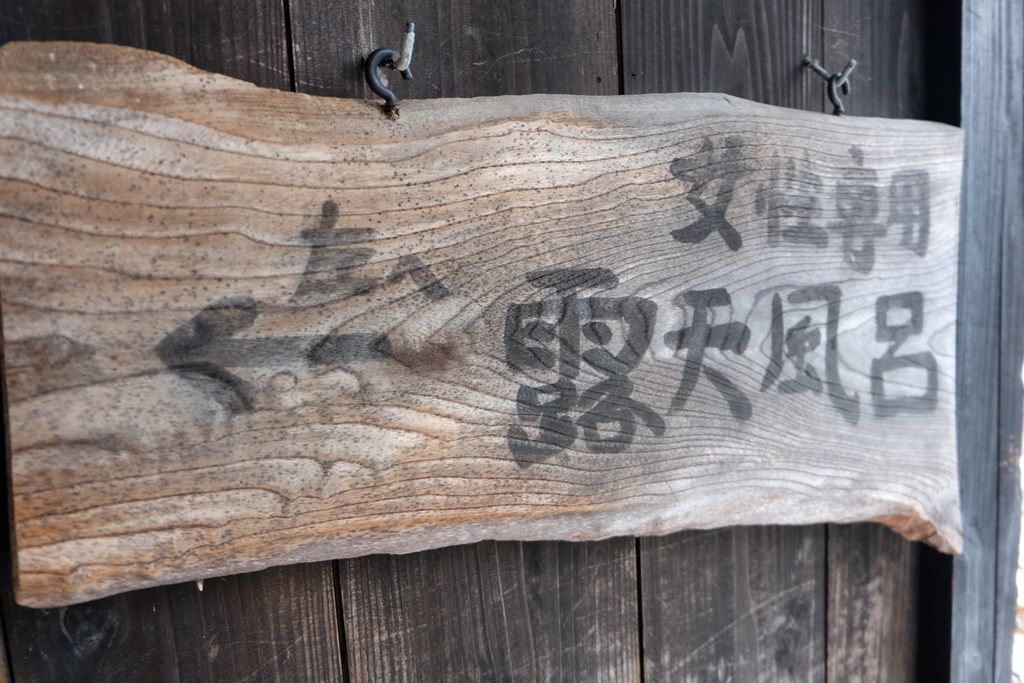 女性専用
露天風呂
←